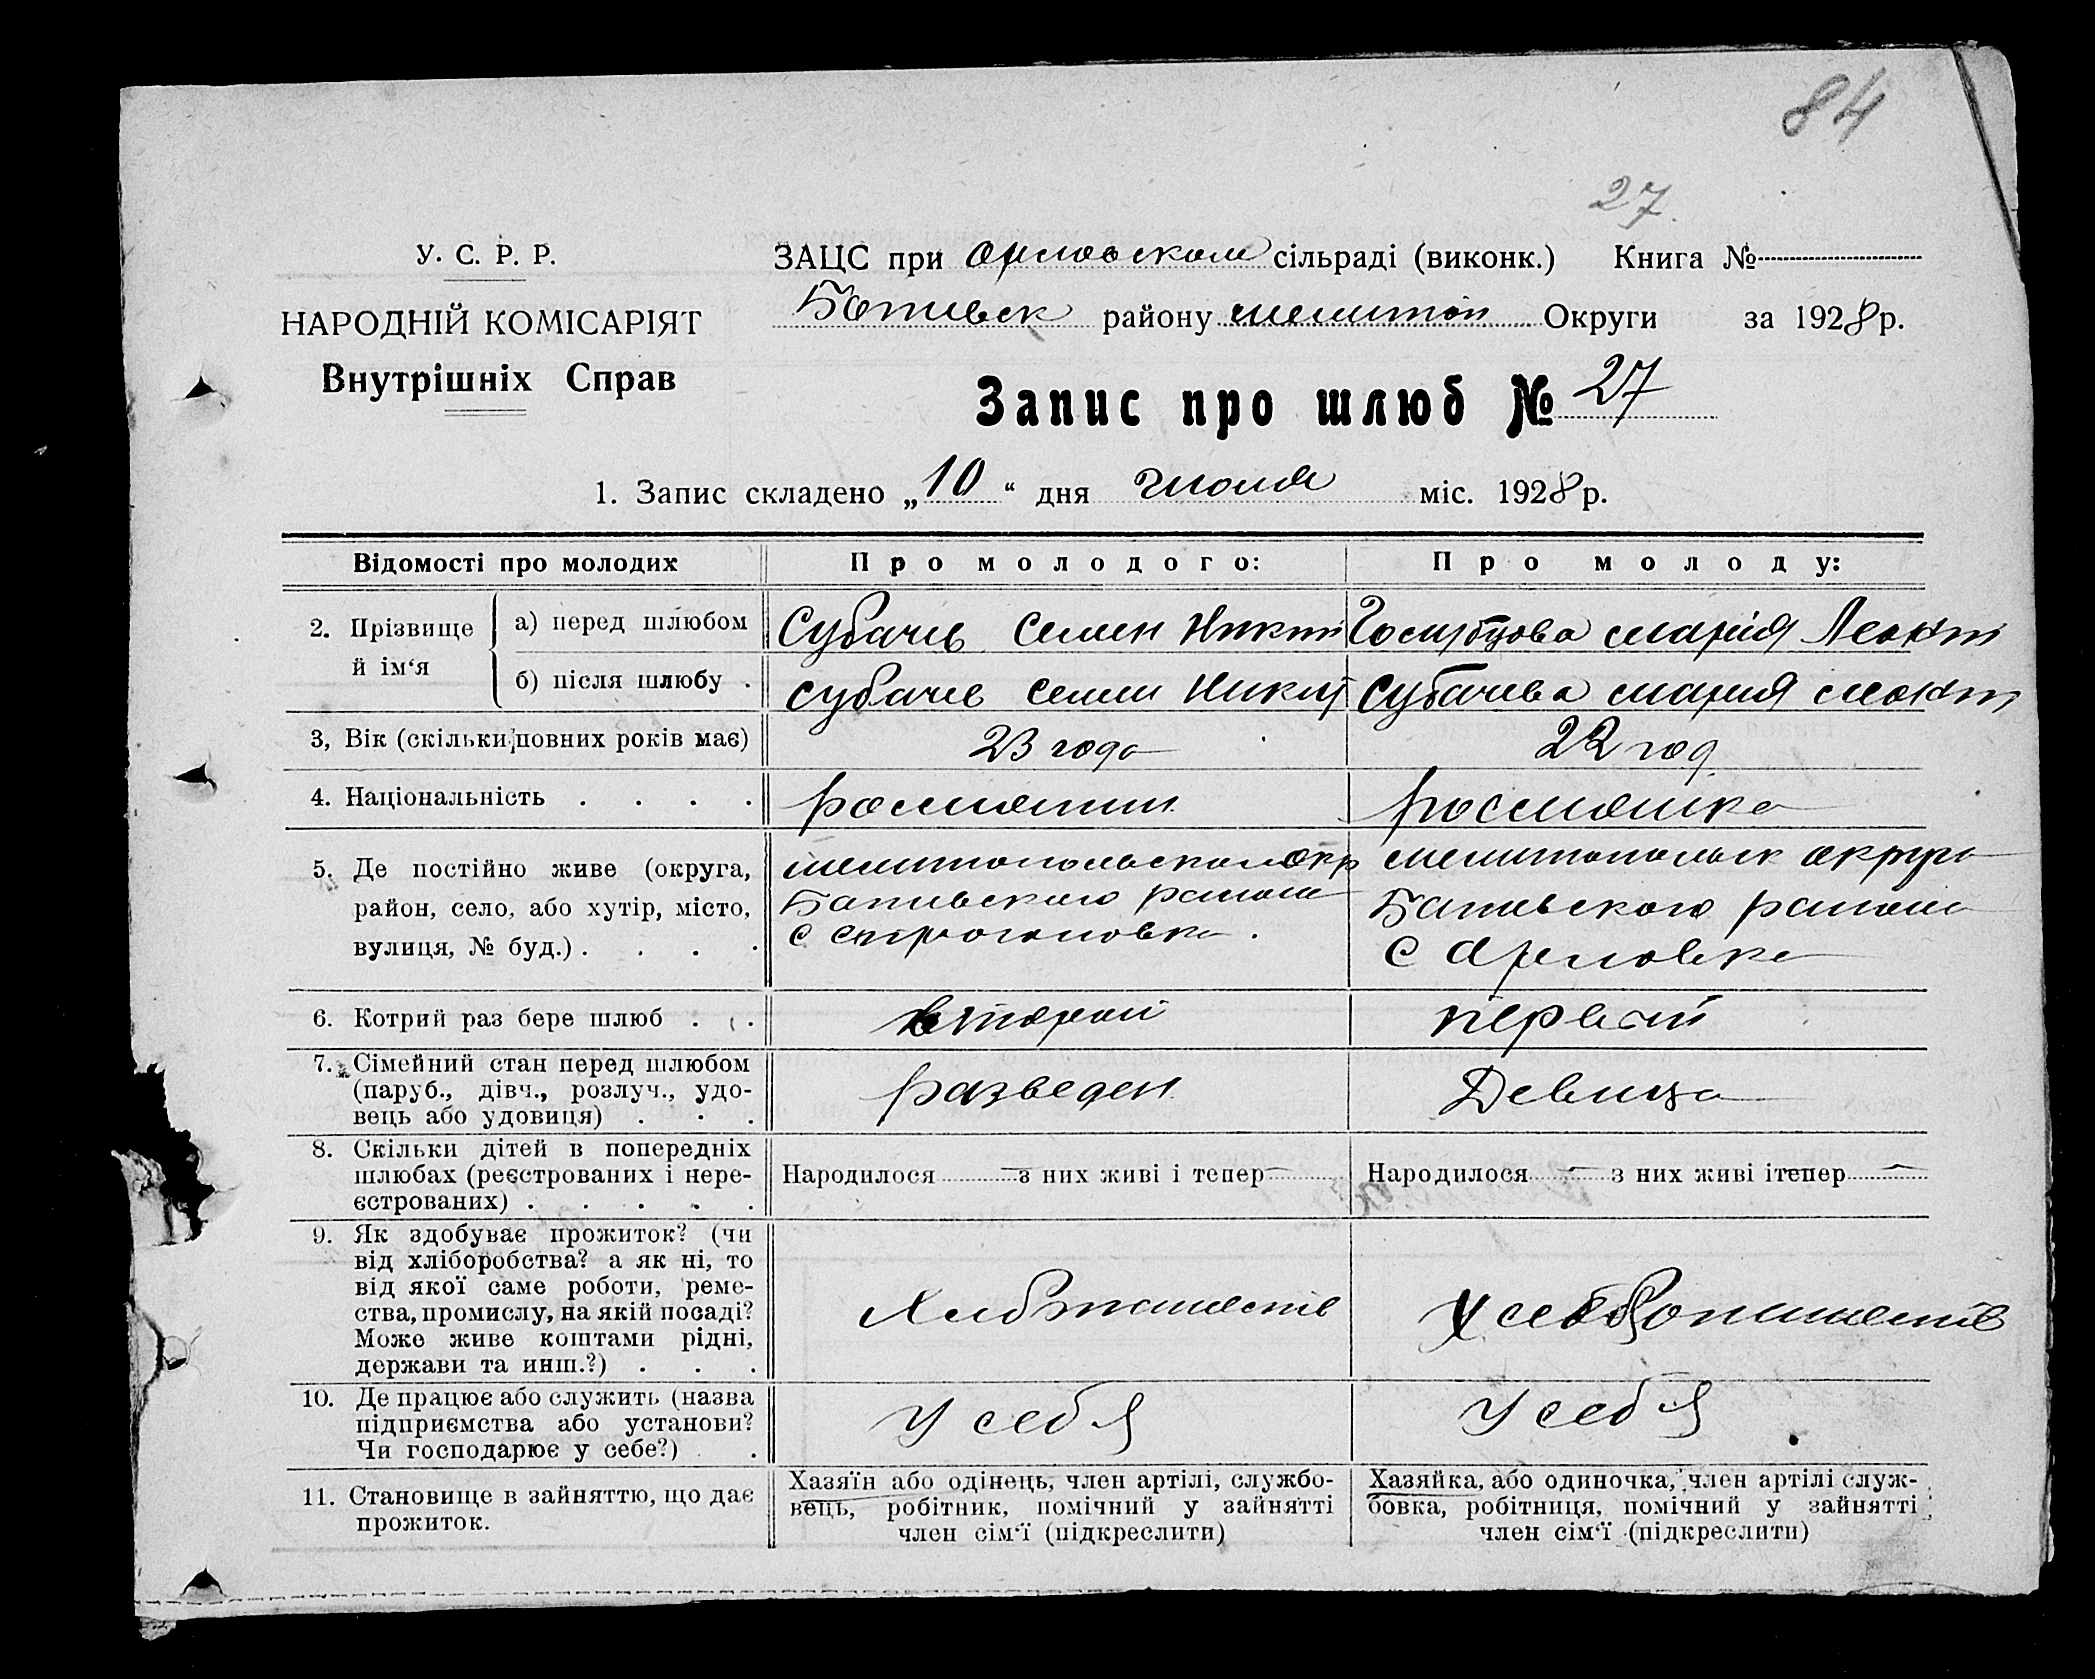 84
27.
У. С. Р. Р.
НАРОДНІЙ КОМІСАРІЯТ
Внутрішніх Справ
ЗАЦС при Орловском сільраді (виконк.) Книга №
району Мелитоп Округи за 1928р.
Запис про шлюб № 27
1. Запис складено „10“ дня Июля міс. 1928р.
Відомості про молодих Про молодого: Про молоду:
2. Прізвище й ім‘я
а) перед шлюбом Субачев Семен Никит Голубцова Мария Леонт
б) після шлюбу . Субачев Семен Никит Субачева Мария Леонт
3, Вік (скільки повних років має) 23 года 22 год
4. Національність . . . . россиянин россиянка
5. Де постійно живе (округа,
район, село, або хутір, місто,
вулиця, № буд.) . . . .
Мелитопольском Окр
района
с Строгоновка.
Мелитопольск округа
района
с Орловка
6. Котрий раз бере шлюб . . . второй первый
7. Сімейний стан перед шлюбом
(паруб., дівч., розлуч., удо-
вець або удовиця) . . .
разведен Девица
8. Скільки дітей в попередніх
шлюбах (реєстрованих і нере-
єстрованих) . . . . .
Народилося — з них живі і тепер — Народилося — з них живі ітепер —
9. Як здобуває прожиток? (чи
від хліборобства? а як ні, то
від якої саме роботи, реме-
ства, промислу, на якій посаді?
Може живе коштами рідні,
держави та инш.?) . . .
10. Де працює або служить (назва
підприємства або установи?
Чи господарює у себе?) . .
У себя У себя
11. Становище в зайняттю, що дає
прожиток.
Хазяїн або одінець, член артілі, службо-
вець, робітник, помічний у зайнятті
член сім‘ї (підкреслити)
Хазяйка, або одиночка, член артілі служ-
бовка, робітниця, помічний у зайнятті
член сім‘ї (підкреслити)